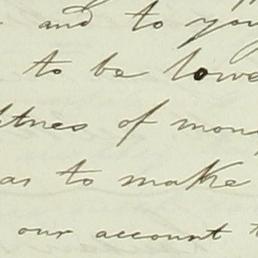 and to you
to be lowe
htness of mon
as to make
our account t